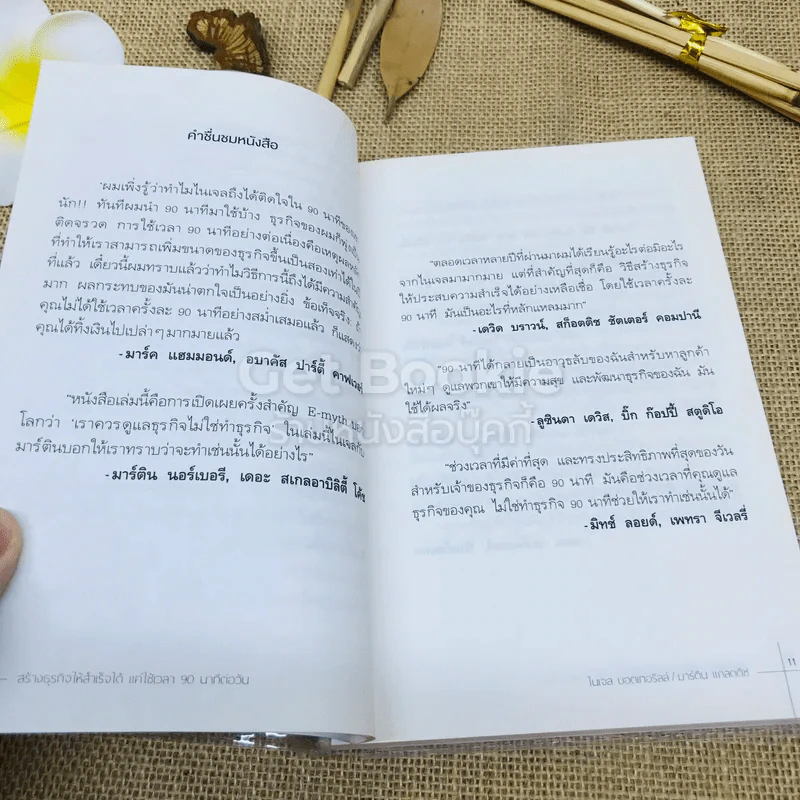 คำชื่นชมหนังสือ
"ผมเพิ่งรู้ว่าทำไมไนเจลถึงได้ติดใจใน 90 นาทีของ
นัก!! ทันทีที่ผมนำ 90 นาทีมาใช้บ้าง ธุรกิจของผมก็พุ่ง
ติดจรวด การใช้เวลา 90 นาทีอย่างต่อเนื่องคือเหตุผลหลัก
ที่ทำให้เราสามารถเพิ่มขนาดของธุรกิจขึ้นเป็นสองเท่าได้ใน
ที่แล้ว เดี๋ยวนี้ผมทราบแล้วว่าทำไมวิธีการนี้ถึงได้มีความสำคัญ
มาก ผลกระทบของมันน่าตกใจเป็นอย่างยิ่ง ข้อเท็จจริง:
คุณไม่ได้ใช้เวลาครั้งละ 90 นาทีอย่างสม่ำเสมอแล้ว ก็แสดงว่า
คุณได้ทิ้งเงินไปเปล่าๆมากมายแล้ว
-มาร์ค แฮมมอนด์, อบาคัส ปาร์ตี้ คาฟเวอลี
"หนังสือเล่มนี้คือการเปิดเผยครั้งสำคัญ E-myth
โลกว่า 'เราควรดูแลธุรกิจไม่ใช่ทำธุรกิจ' ในเล่มนี้ไนเจลกับ
มาร์ตินบอกให้เราทราบว่าจะทำเช่นนั้นได้อย่างไร"
-มาร์ติน นอร์เบอรี, เดอะ สเกลอาบิลิตี้ โค้ช
สร้างธุรกิจให้สำเร็จได้ แค่ใช้เวลา 90 นาทีต่อวัน
"ตลอดเวลาหลายปีที่ผ่านมาผมได้เรียนรู้อะไรต่อมิอะไร
จากไนเจลมามากมาย แต่ที่สำคัญที่สุดก็คือ วิธีสร้างธุรกิจ
ให้ประสบความสำเร็จได้อย่างเหลือเชื่อ โดยใช้เวลาครั้งละ
90 นาที มันเป็นอะไรที่หลักแหลมมาก"
-เดวิด บราวน์, สก็อตติช ชัตเตอร์ คอมปานี
"90 นาทีได้กลายเป็นอาวุธลับของฉันสำหรับหาลูกค้า
ใหม่ๆ ดูแลพวกเขาให้มีความสุข และพัฒนาธุรกิจของฉัน มัน
ใช้ได้ผลจริง"
-ลูซินดา เดวิส, บิ๊ก ก๊อปปี้ สตูดิโอ
"ช่วงเวลาที่มีค่าที่สุด และทรงประสิทธิภาพที่สุดของวัน
สำหรับเจ้าของธุรกิจก็คือ 90 นาที มันคือช่วงเวลาที่คุณดูแล
ธุรกิจของคุณ ไม่ใช่ทำธุรกิจ 90 นาทีช่วยให้เราทำเช่นนั้นได้"
-มิทช์ ลอยด์, เพทรา จีเวลรี่
ไนเจล บอตเทอริลล์ / มาร์ติน แกลดดิช
11
Get Bookie
รวมหนังสือบุ๊คกี้